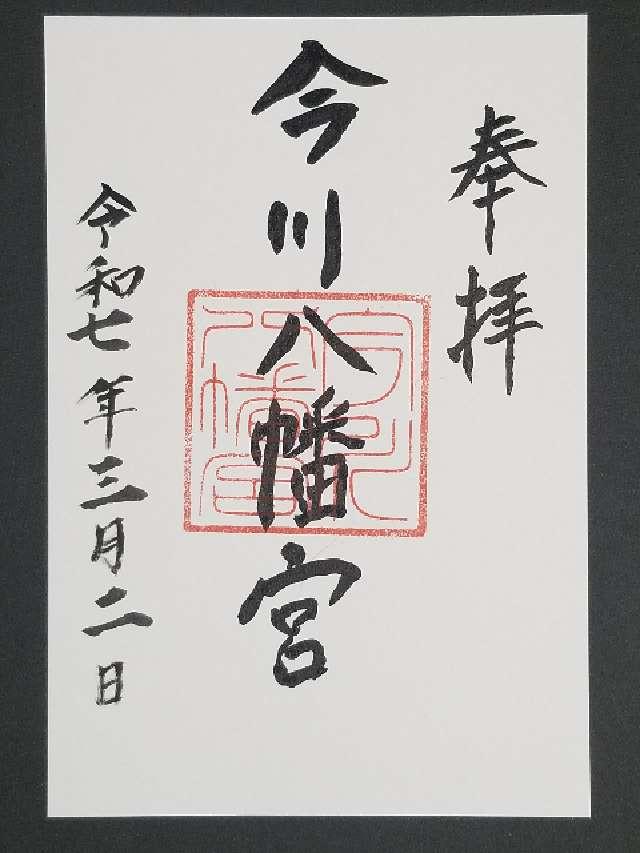 奉拝
今川八幡宮
令和七年三月二日